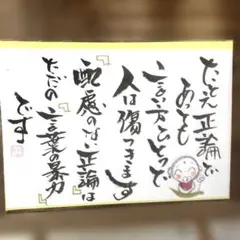 たとえ正論で
あっても
言い方ひとつで
人は傷つきます
『配慮のない正論』は
ただの『言葉の暴力』
です